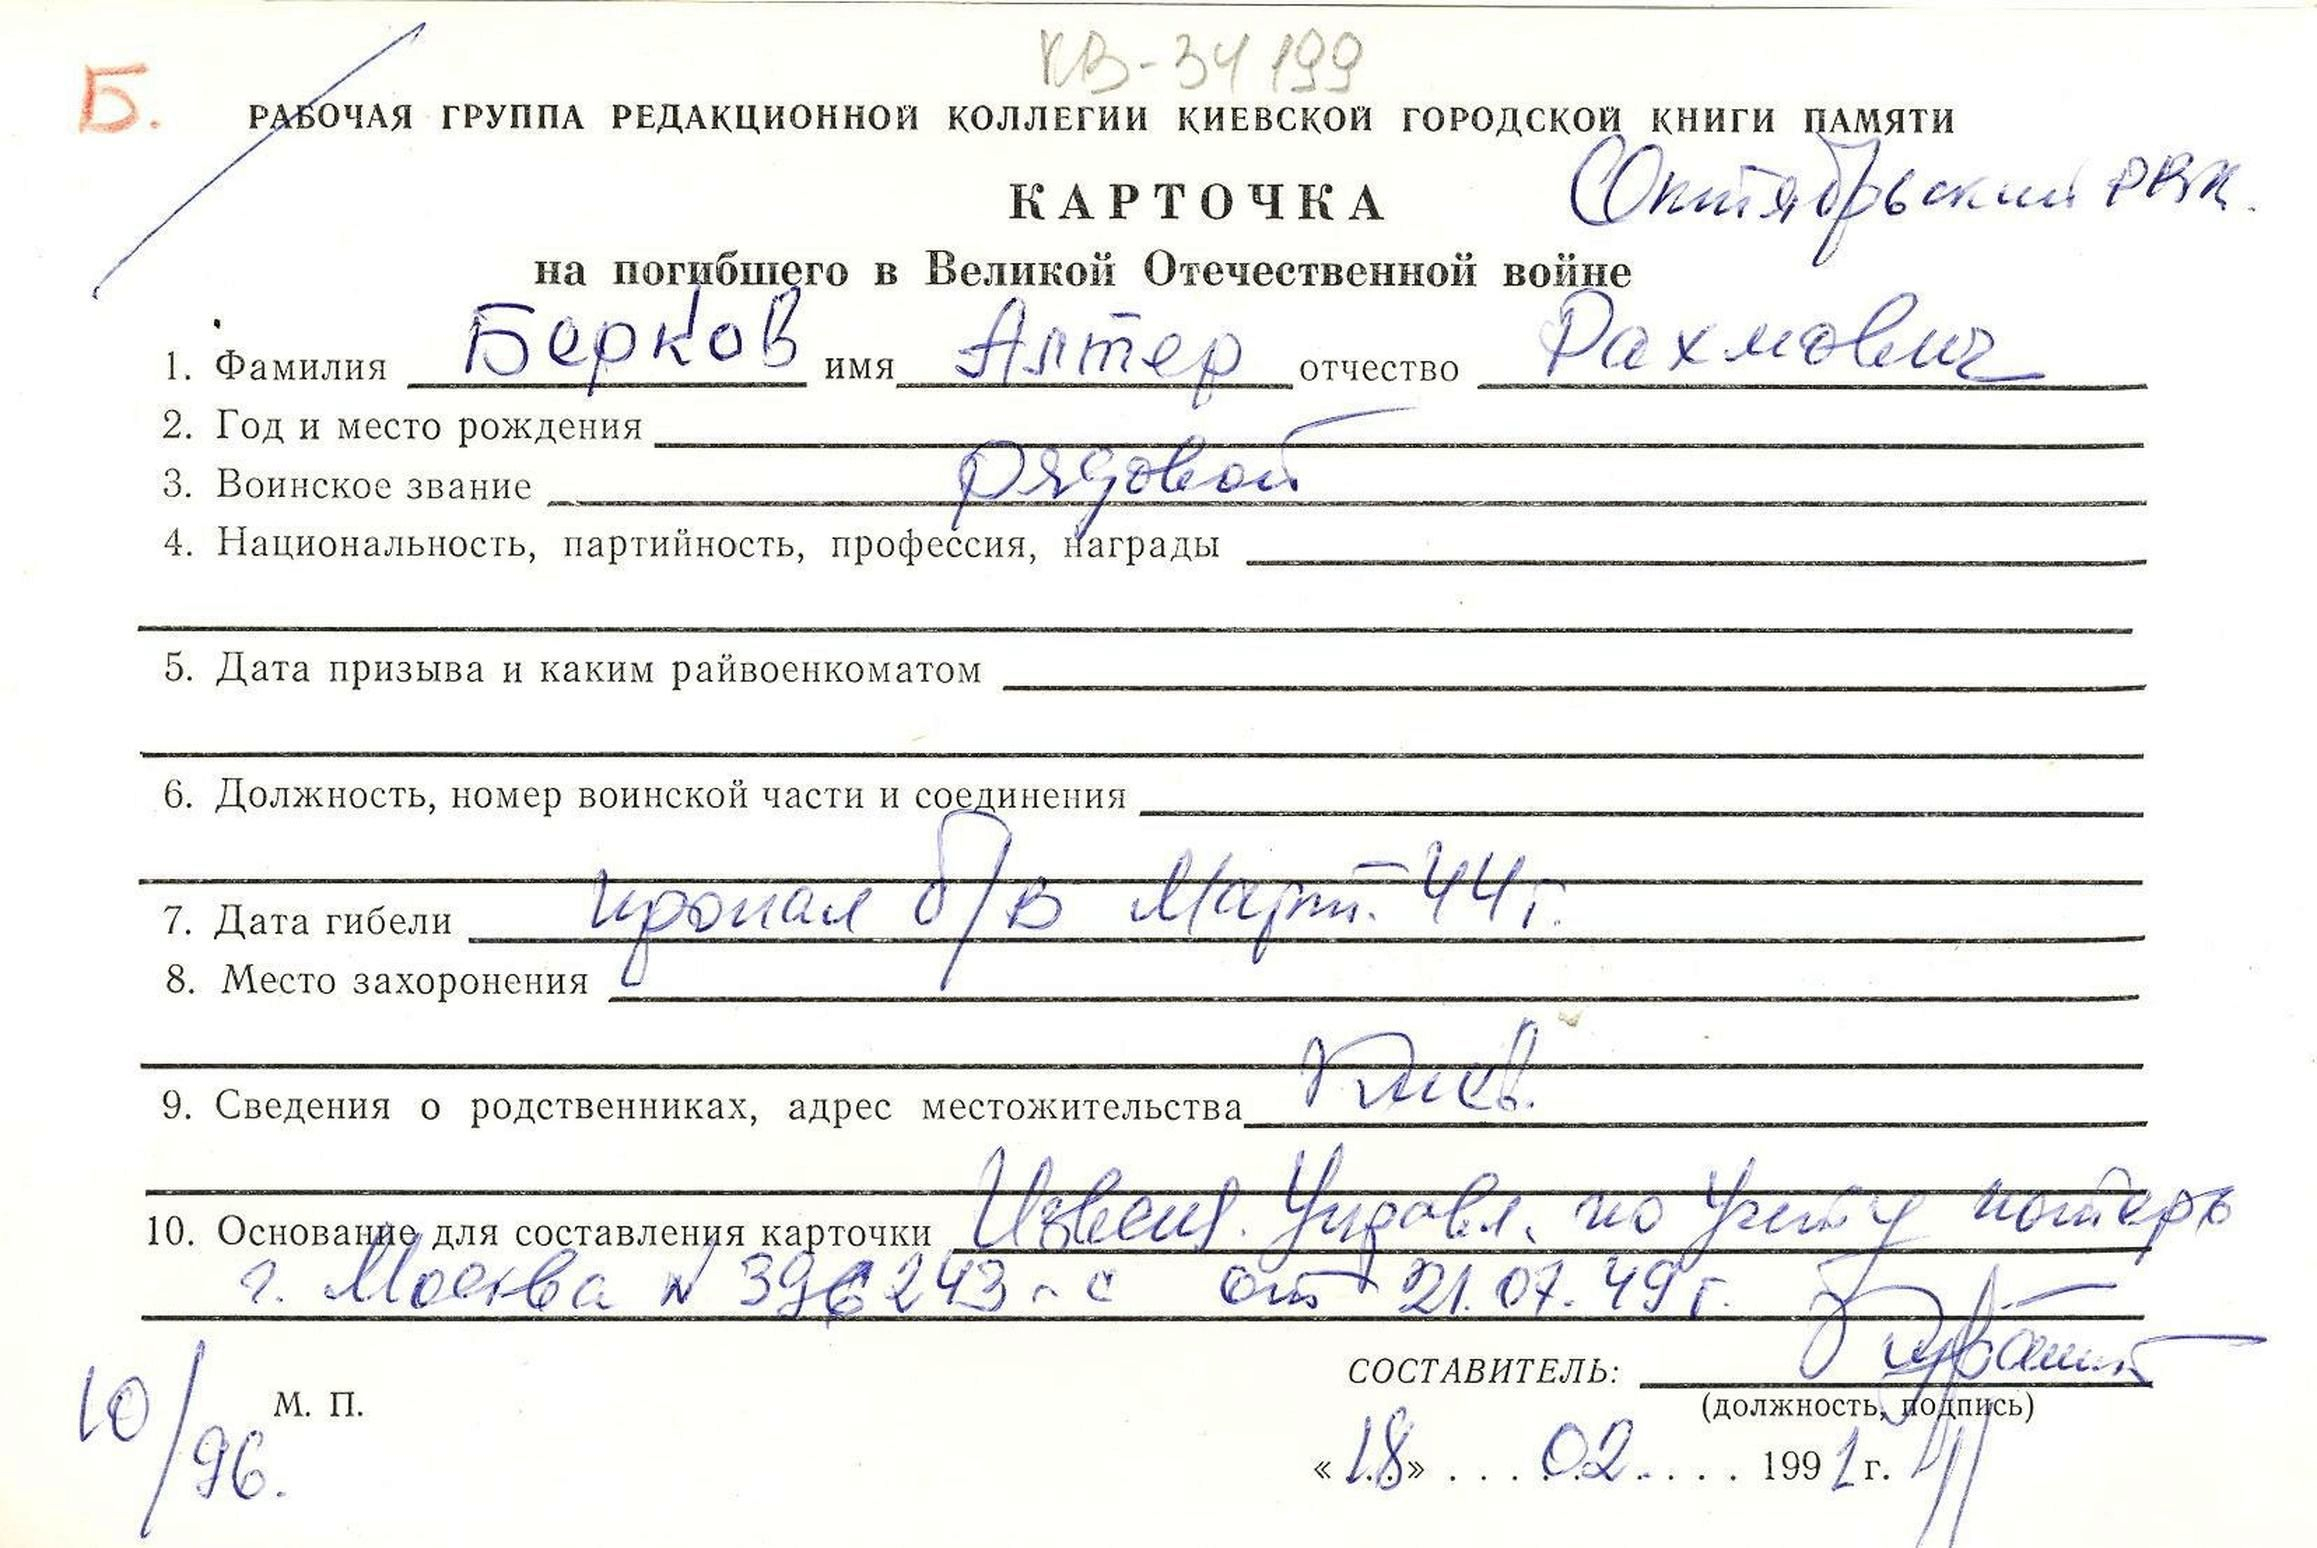 КВ-34199
Б.
РАБОЧАЯ ГРУППА РЕДАКЦИОННОЙ КОЛЛЕГИИ КИЕВСКОЙ ГОРОДСКОЙ КНИГИ ПАМЯТИ
Октябрьский РВК.
КАРТОЧКА
на погибшего в Великой Отечественной войне
1. Фамилия Берков имя Алтер отчество Рахмович
2. Год и место рождения
3. Воинское звание рядовой
4. Национальность, партийность, профессия, награды
5. Дата призыва и каким райвоенкоматом
6. Должность, номер воинской части и соединения
7. Дата гибели пропал б/в Март. 44 г.
8. Место захоронения
9. Сведения о родственниках, адрес местожительства Киев.
10. Основание для составления карточки Извещ. Управл. по Учету потерь
г. Москва N 396243 - с от 21.07.49 г.
СОСТАВИТЕЛЬ:
М. П.
(должность, подпись)
10/96.
«18» . . . 02 . . . . 1991 г.